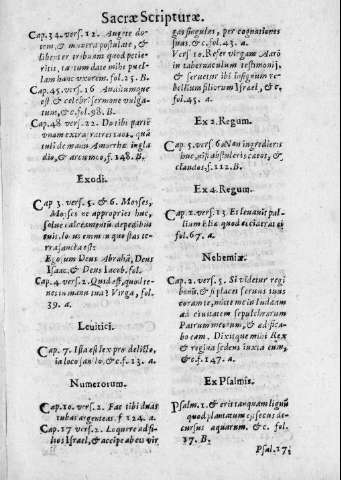 Sacræ Scripturæ.
Cap. 34. vers. 12. Augete dotem, & munera postulate, &
libenter tribuam quod petieritis, tantum date mihi puellam hanc vxorem. fol. 25. B.
Cap. 45. vers. 16 Auditumque
est & celebri sermone vulgatum, & c. fol. 98. B.
Cap. 48 vers. 22. Do tibi partē
vnam extra fratres tuos, quā
tuli de manu Amorrhæi in gladio, & arcu meo, f. 148. B.
Exodi.
Cap 3. vers. 5. & 6. Moyses,
Moyses ne appropries huc,
solue calceamentū de pedibus
tuis, locus enim in quo stas terra sancta est
Ego sum Deus Abrahā, Deus
Isaac, & Deus Iacob. fol.
Cap. 4 vers. 2. Quid est, quod tenes in manu tua? Virga, fol.
39. a.
Leuitici.
Cap. 7. Ista est lex pro delicto,
in loco sancto, & c. f. 13. a.
Numerorum.
Cap. 10. vers. 2. Fac tibi duas
tubas argenteas. f 124. a.
Cap. 17 vers. 2. Loquere ad filios Israel, & accipe ab eis virgas singulas, per cognationes
suas. & c, fol. 43. a.
Vers 10. Refer virgam Aarō
in tabernaculum testimonij,
& seruetur ibi in signum rebellium filiorum Israel, & c.
fol. 45. a.
Ex 2. Regum.
Cap. 5. vers. 6 Nan ingredieris
huc, nisi abstuleris cæcos, &
claudos. f. 112. B.
Ex 4. Regum.
Cap. 2. vers. 13. Et leuauit pallium Eliæ quod ceciderat ei
fol. 67. a.
Nehemiæ.
Cap. 2. vers. 5. Si videtur regi
bonū, & si placet seruus tuus
coram te, mitte me in Iudæam
ad ciuitatem sepulchrorum
Patrum meorum, & ædificabo eam. Dixitque mihi Rex
& regina sedens iuxta eum,
& c. f. 147. a.
Ex Psalmis.
Psalm. 1. & erit tanquam lignū
quod plantatum est secus decursus aquarum. & c. fol.
37. B.
Psal. 17.